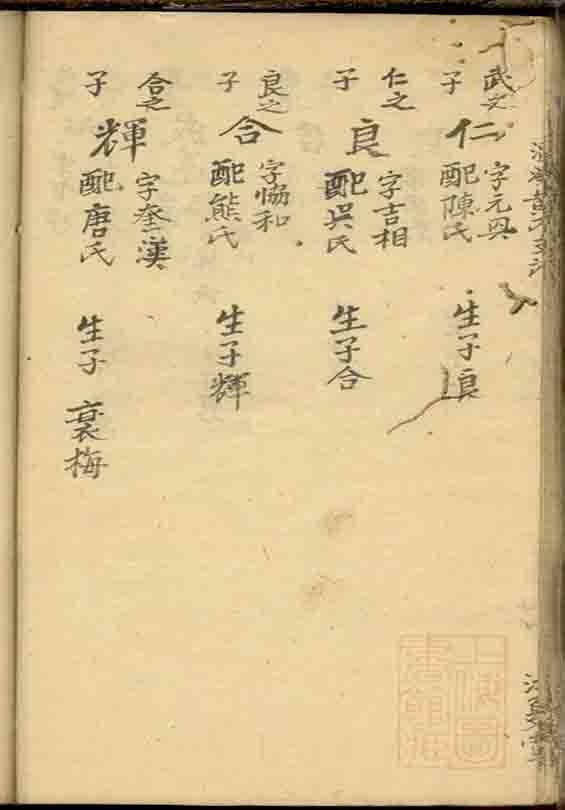 武之子 仁 字元興 配陳氏 生子良
仁之子 良 字吉相 配吳氏 生子合
良之子 合 字協和 配熊氏 生子輝
合之子 輝 字奎漢 配唐氏 生子 裏梅
上海圖書館藏